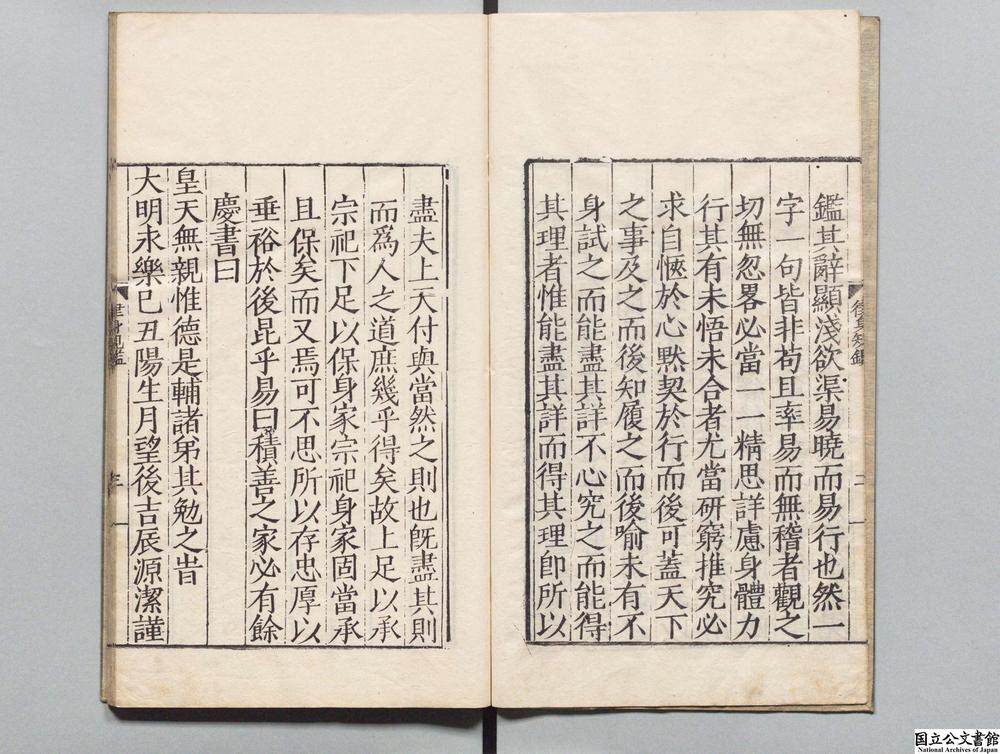 鑑其辭顯淺欲渠易曉而易行也然一
字一句皆非苟且率易而無稽者觀之
切無忽畧必當一一精思詳慮身體力
行其有未悟未合者尤當研窮推究必
求自愜於心黙契於行而後可蓋天下
之事及之而後知履之而後喻未有不
身試之而能盡其詳不心究之而能得
其理者惟能盡其詳而得其理即所以
二
盡夫上天付與當然之則也旣盡其則
而爲人之道庶幾乎得矣故上足以承
宗祀下足以保身家宗祀身家固當承
且保矣而又焉可不思所以存忠厚以
垂裕於後昆乎易曰積善之家必有餘
慶書曰
皇天無親惟德是輔諸弟其勉之旹
大明永樂巳丑陽生月望後吉辰源潔謹
三
国立公文書館
National Archives of Japan